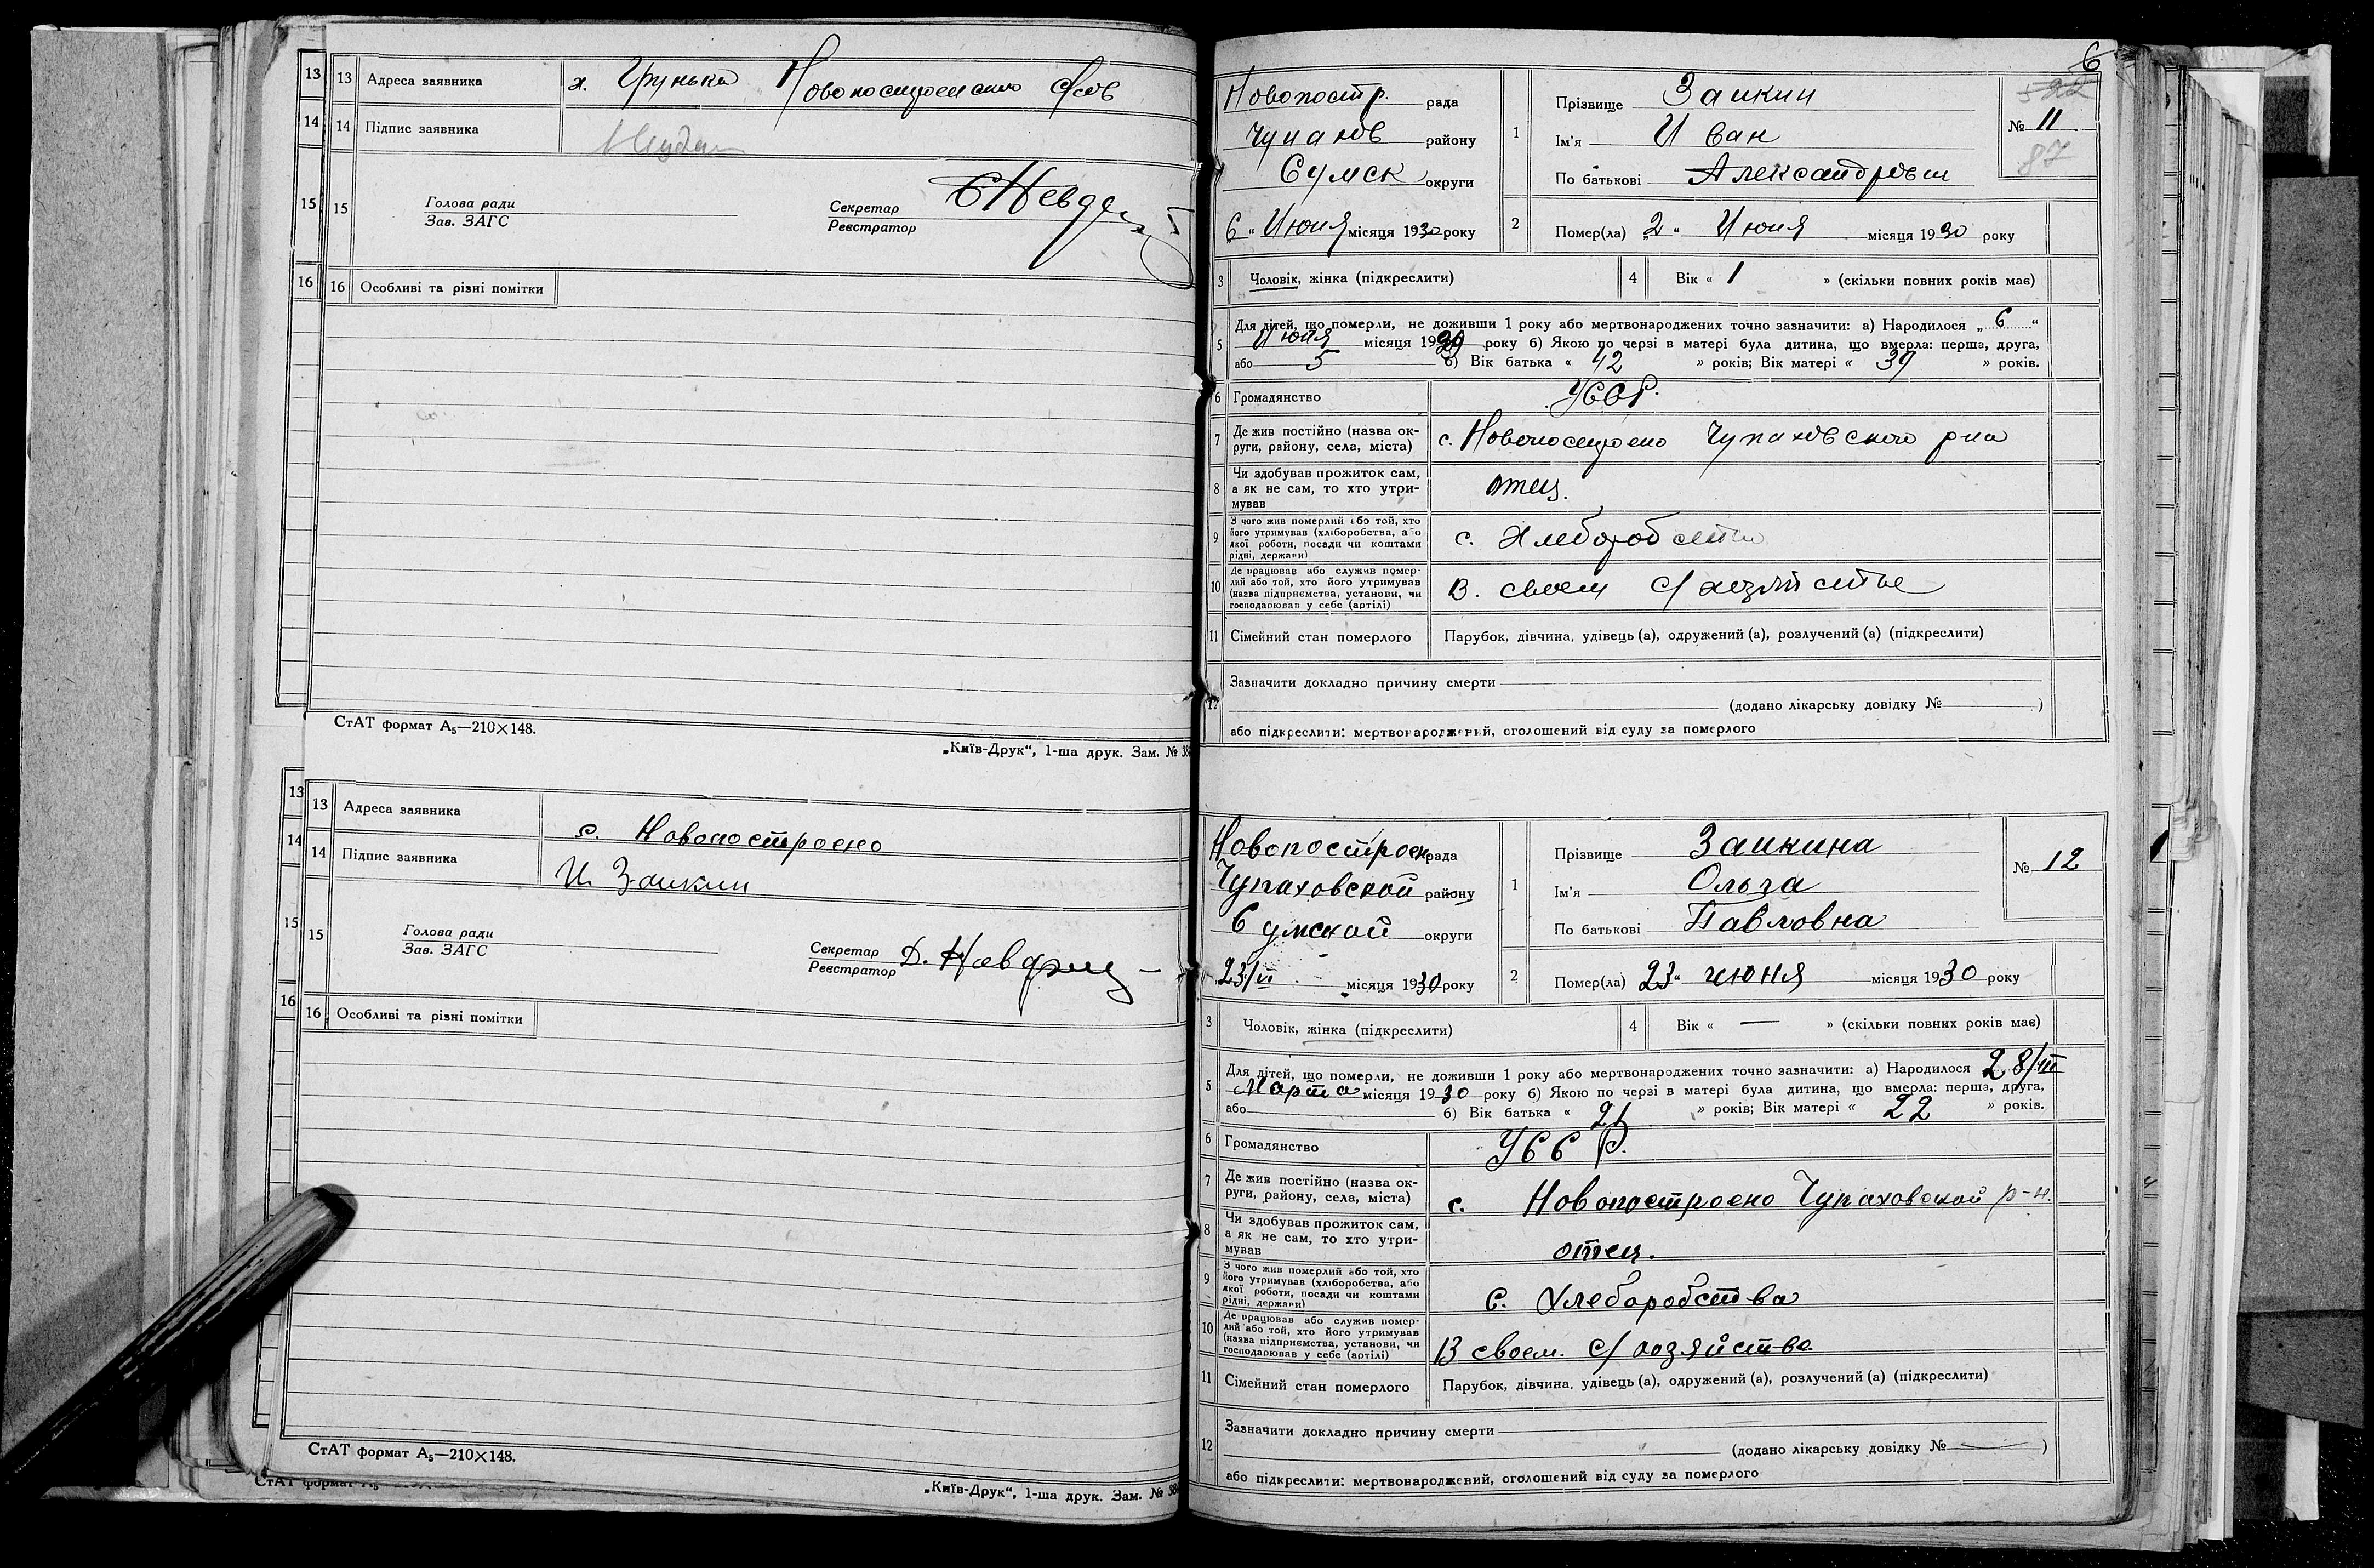 13 13 Адреса заявника х. Грунька Новопостроенского с/сов
14 14 Підпис заявника
15 15 Голова ради
Зав. ЗАГС
Секретар
Реєстратор
16 16 Особливі та різні помітки
СтАТ формат А5—210×148.
„Київ-Друк“, 1-ша друк. Зам. № 38
13 13 Адреса заявника с. Новопостроено
14 14 Підпис заявника И Заикин
15 15 Голова ради
Зав. ЗАГС
Секретар
Реєстратор
16 16 Особливі та різні помітки
СтАТ формат А5—210×148.
„Київ-Друк“, 1-ша друк. Зам. № 38
СтАТ формат А5
6
Новопостр. рада
Чупахов району
Сумск округи
6 „ Июня місяця 1930 року
1 Прізвище Заикин
Ім'я Иван
По батькові Александрович
№ 11
87
2 Помер(ла) „2“ Июня місяця 1930 року
3 Чоловік, жінка (підкреслити)
4 Вік « 1 » (скільки повних років має)
5 Для дітей, що померли, не доживши 1 року або мертвонароджених точно зазначити: а) Народилося „6“
Июня місяця 1929 року б) Якою по черзі в матері була дитина, що вмерла: перша, друга,
або 5 б) Вік батька « 42 » років; Вік матері « 39 » років.
6 Громадянство УССР.
7 Де жив постійно (назва ок-
руги, району, села, міста) с. Новопостроено Чупаховского р-на
8 Чи здобував прожиток сам,
а як не сам, то хто утри-
мував отец.
9 З чого жив померлий або той, хто
його утримував (хліборобства, або
якої роботи, посади чи коштами
рідні, держави) с. хлеборобства
10 Де працював або служив помер-
лий або той, хто його утримував
(назва підприємства, установи, чи
господарював у себе (артілі) В. своем с/хозяйстве
11 Сімейний стан померлого Парубок, дівчина, удівець (а), одружений (а), розлучений (а) (підкреслити)
12 Зазначити докладно причину смерти
(додано лікарську довідку № )
або підкреслити: мертвонароджений, оголошений від суду за померлого
Новопостроен рада
Чупаховской району
Сумской округи
23/VI місяця 1930 року
1 Прізвище Заикина
Ім'я Ольга
По батькові Павловна
№ 12
2 Помер(ла) 23“ июня місяця 1930 року
3 Чоловік, жінка (підкреслити)
4 Вік « — » (скільки повних років має)
5 Для дітей, що померли, не доживши 1 року або мертвонароджених точно зазначити: а) Народилося 28/III
Марта місяця 1930 року б) Якою по черзі в матері була дитина, що вмерла: перша, друга,
або б) Вік батька « 21 » років; Вік матері « 22 » років.
6 Громадянство УССР.
7 Де жив постійно (назва ок-
руги, району, села, міста) с. Новопостроено Чупаховской р-н.
8 Чи здобував прожиток сам,
а як не сам, то хто утри-
мував отец.
9 З чого жив померлий або той, хто
його утримував (хліборобства, або
якої роботи, посади чи коштами
рідні, держави) С. Хлеборобства
10 Де працював або служив помер-
лий або той, хто його утримував
(назва підприємства, установи, чи
господарював у себе (артілі) В своем. с/хозяйстве.
11 Сімейний стан померлого Парубок, дівчина, удівець (а), одружений (а), розлучений (а) (підкреслити)
12 Зазначити докладно причину смерти
(додано лікарську довідку № — )
або підкреслити: мертвонароджений, оголошений від суду за померлого